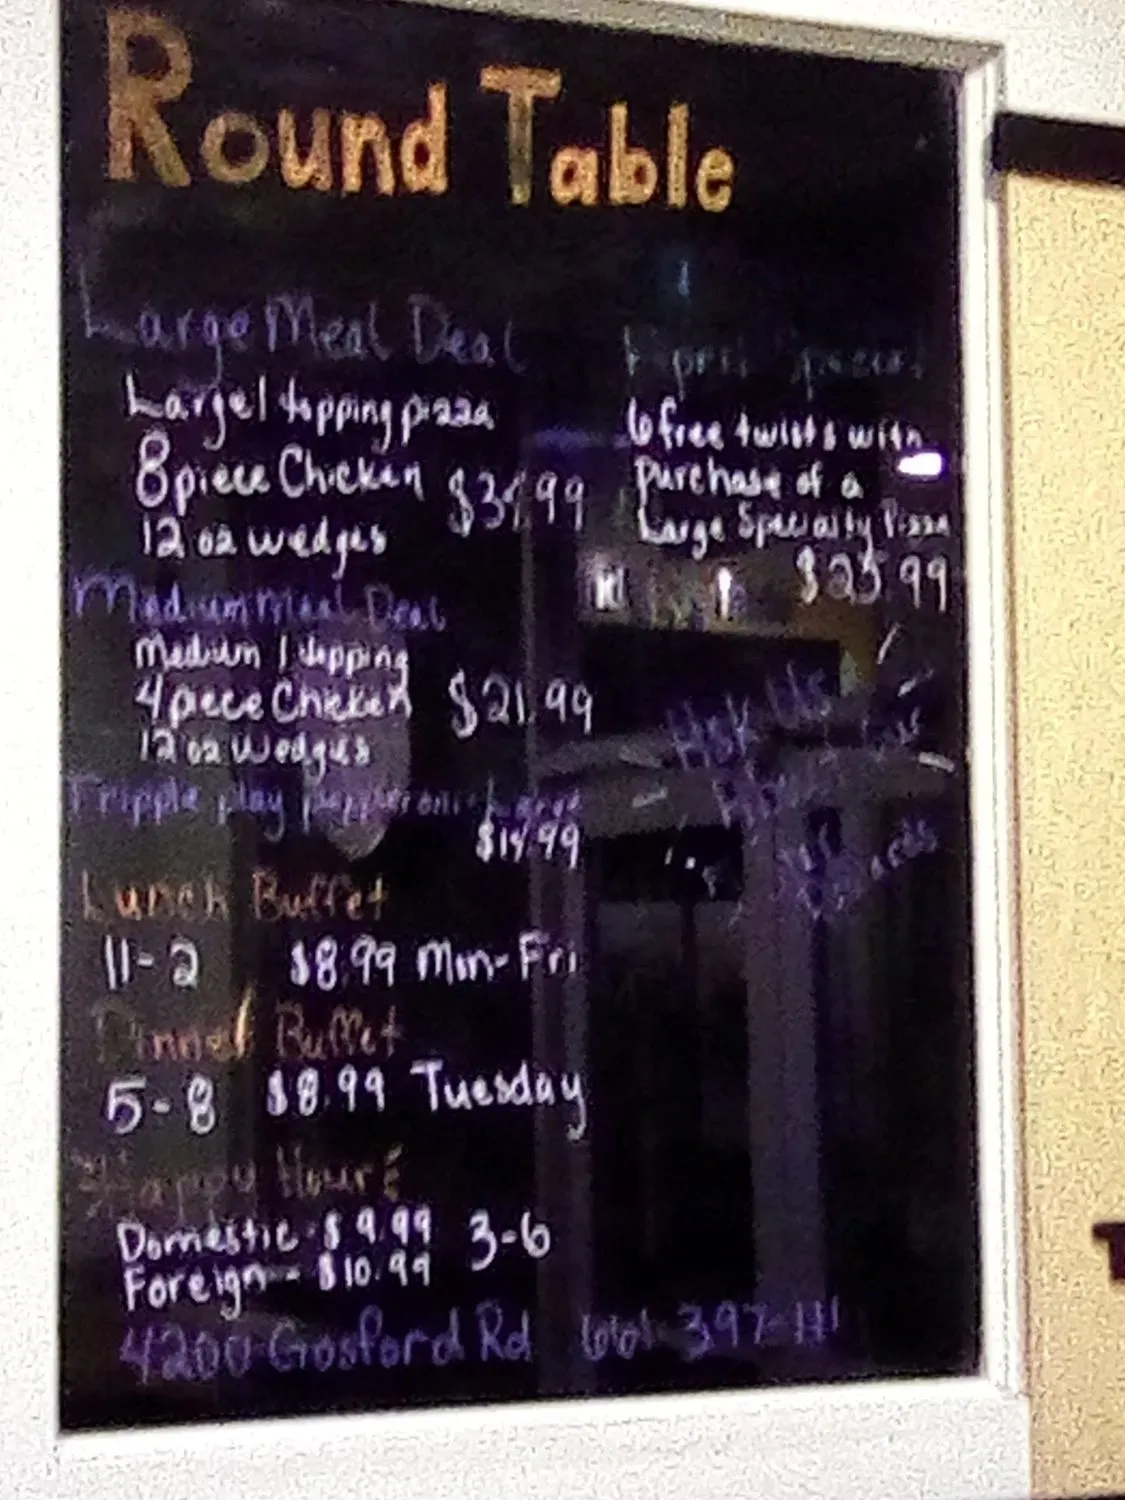 Round Table
Large Meal Deal
Large 1 topping pizza
8 piece Chicken
12 oz wedges
Medium Meal Deal
Medium 1 topping
4 piece Chicken $21.99
12 oz Wedges
Tripple play pepperoni Large
$14.99
Lunch Buffet
11-2 $8.99 Mon-Fri
Dinner Buffet
5-8 $8.99 Tuesday
Happy Hour
Domestic - $9.99 3-6
Foreign - $10.99
4200 Gosford Rd 661-397-1111
6 free twists with
purchase of a
Large Specialty Pizza
$25.99
Ask Us
About Our
Rewards